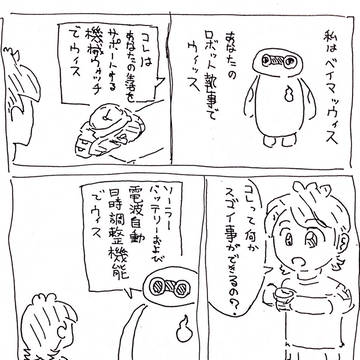 私はベイマッウィス
あなたの
ロボット執事で
ウィッス
コレは
あなたの生活を
サポートする
機械ウォッチ
でウィス
コレって何か
スゴイ事ができるの?
ソーラー
バッテリーおよび
電波自動
日時調整機能
でウィス